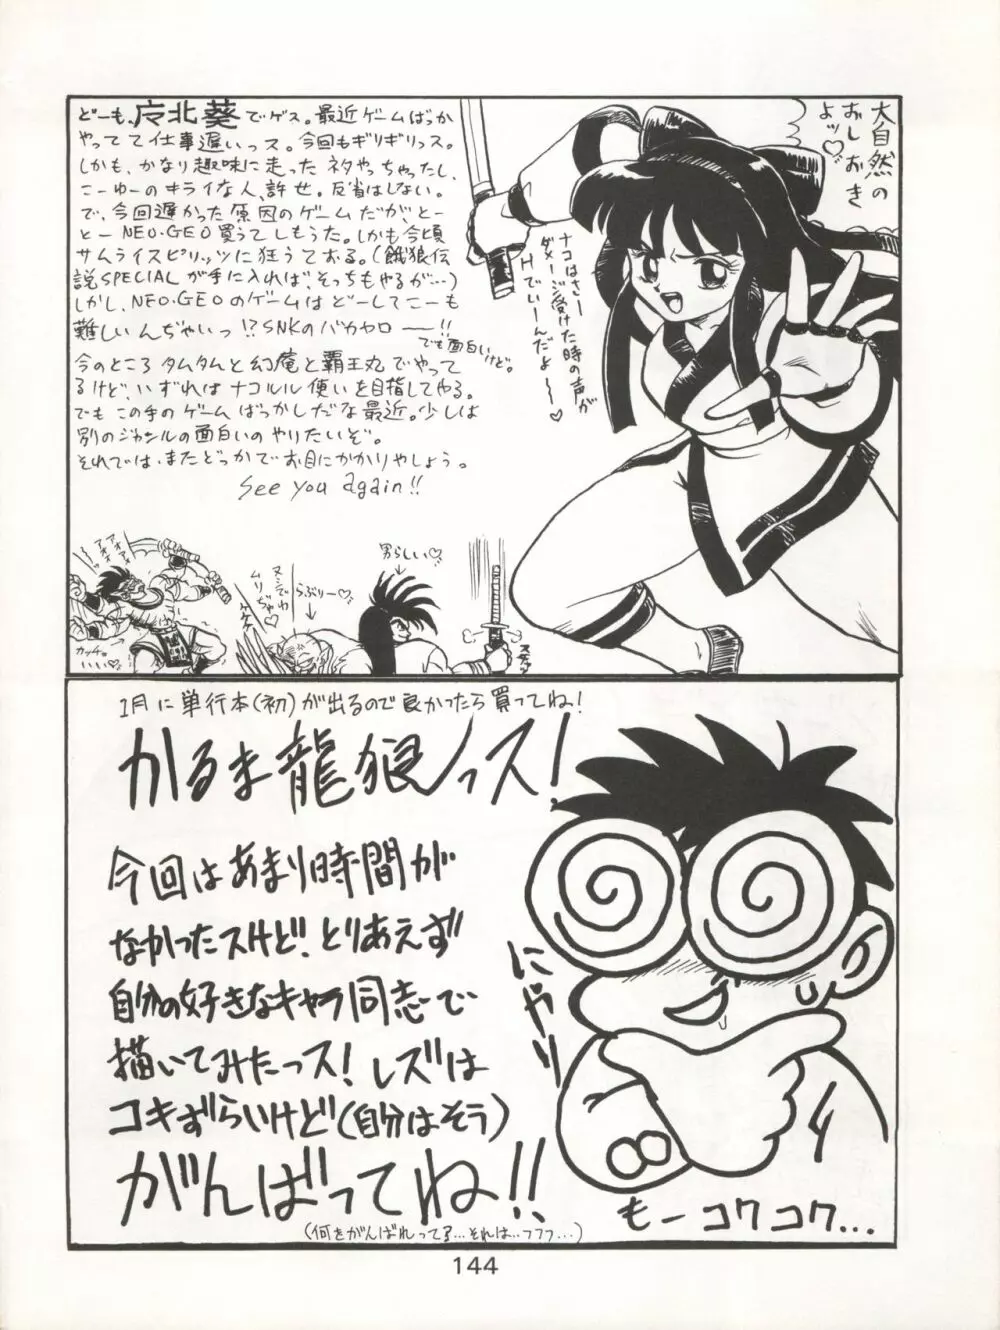 どーも、庁北葵でゲス。最近ゲームばっか
やってて仕事遅いっス。今回もギリギリっス。
しかも、かなり趣味に走った ネタやっちゃったし、
こーゆーのキライな人、許せ。反省はしない。
で、今回遅かった原因のゲームだが、とー
とー NEO・GEO買うてしもうた。しかも今頃
サムライスピリッツに狂うておる。(餓狼伝
説SPECIALが手に入れば、そっちもやるが…)
しかし、NEO・GEOのゲームはどーしてこーも
難しいんぢゃいっ!?SNKのバカヤロ――!!
でも面白いけど。
今のところタムタムと幻庵と覇王丸でやって
るけど、いずれはナコルル使いを目指してやる。
でもこの手のゲームばっかしだな最近。少しは
別のジャンルの面白いのやりたいぞ。
それでは、またどっかでお目にかかりやしょう。
See you again!!
大自然の
おしおき
よッ♡
ナコはさー
ダメージ受けた時の声が
Hでいーんだよ〜〜♡
アオアオ
カッチョ
いいい♡
ムリぢゃ♡
ケケケ
らぶりー♡
男らしい♡
1月に単行本(初)が出るので良かったら買ってね!
かるま龍狼っス!
今回はあまり時間が
なかったスけど、とりあえず
自分の好きなキャラ同志で
描いてみたっス!レズは
コキずらいけど(自分はそう)
がんばってね!!
(何をがんばれって?…それは…フフフ…)
にやり
もーコワコワ…
144